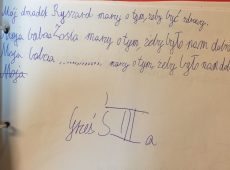 Mój dziadek Ryszard mamy o tym, żeby być zdrowy.
Moja babcia Zosia mamy o tym, żeby było nam dobrze
Moja babcia .............. mamy o tym, żeby było nam dob
Moja
Grześ S III a